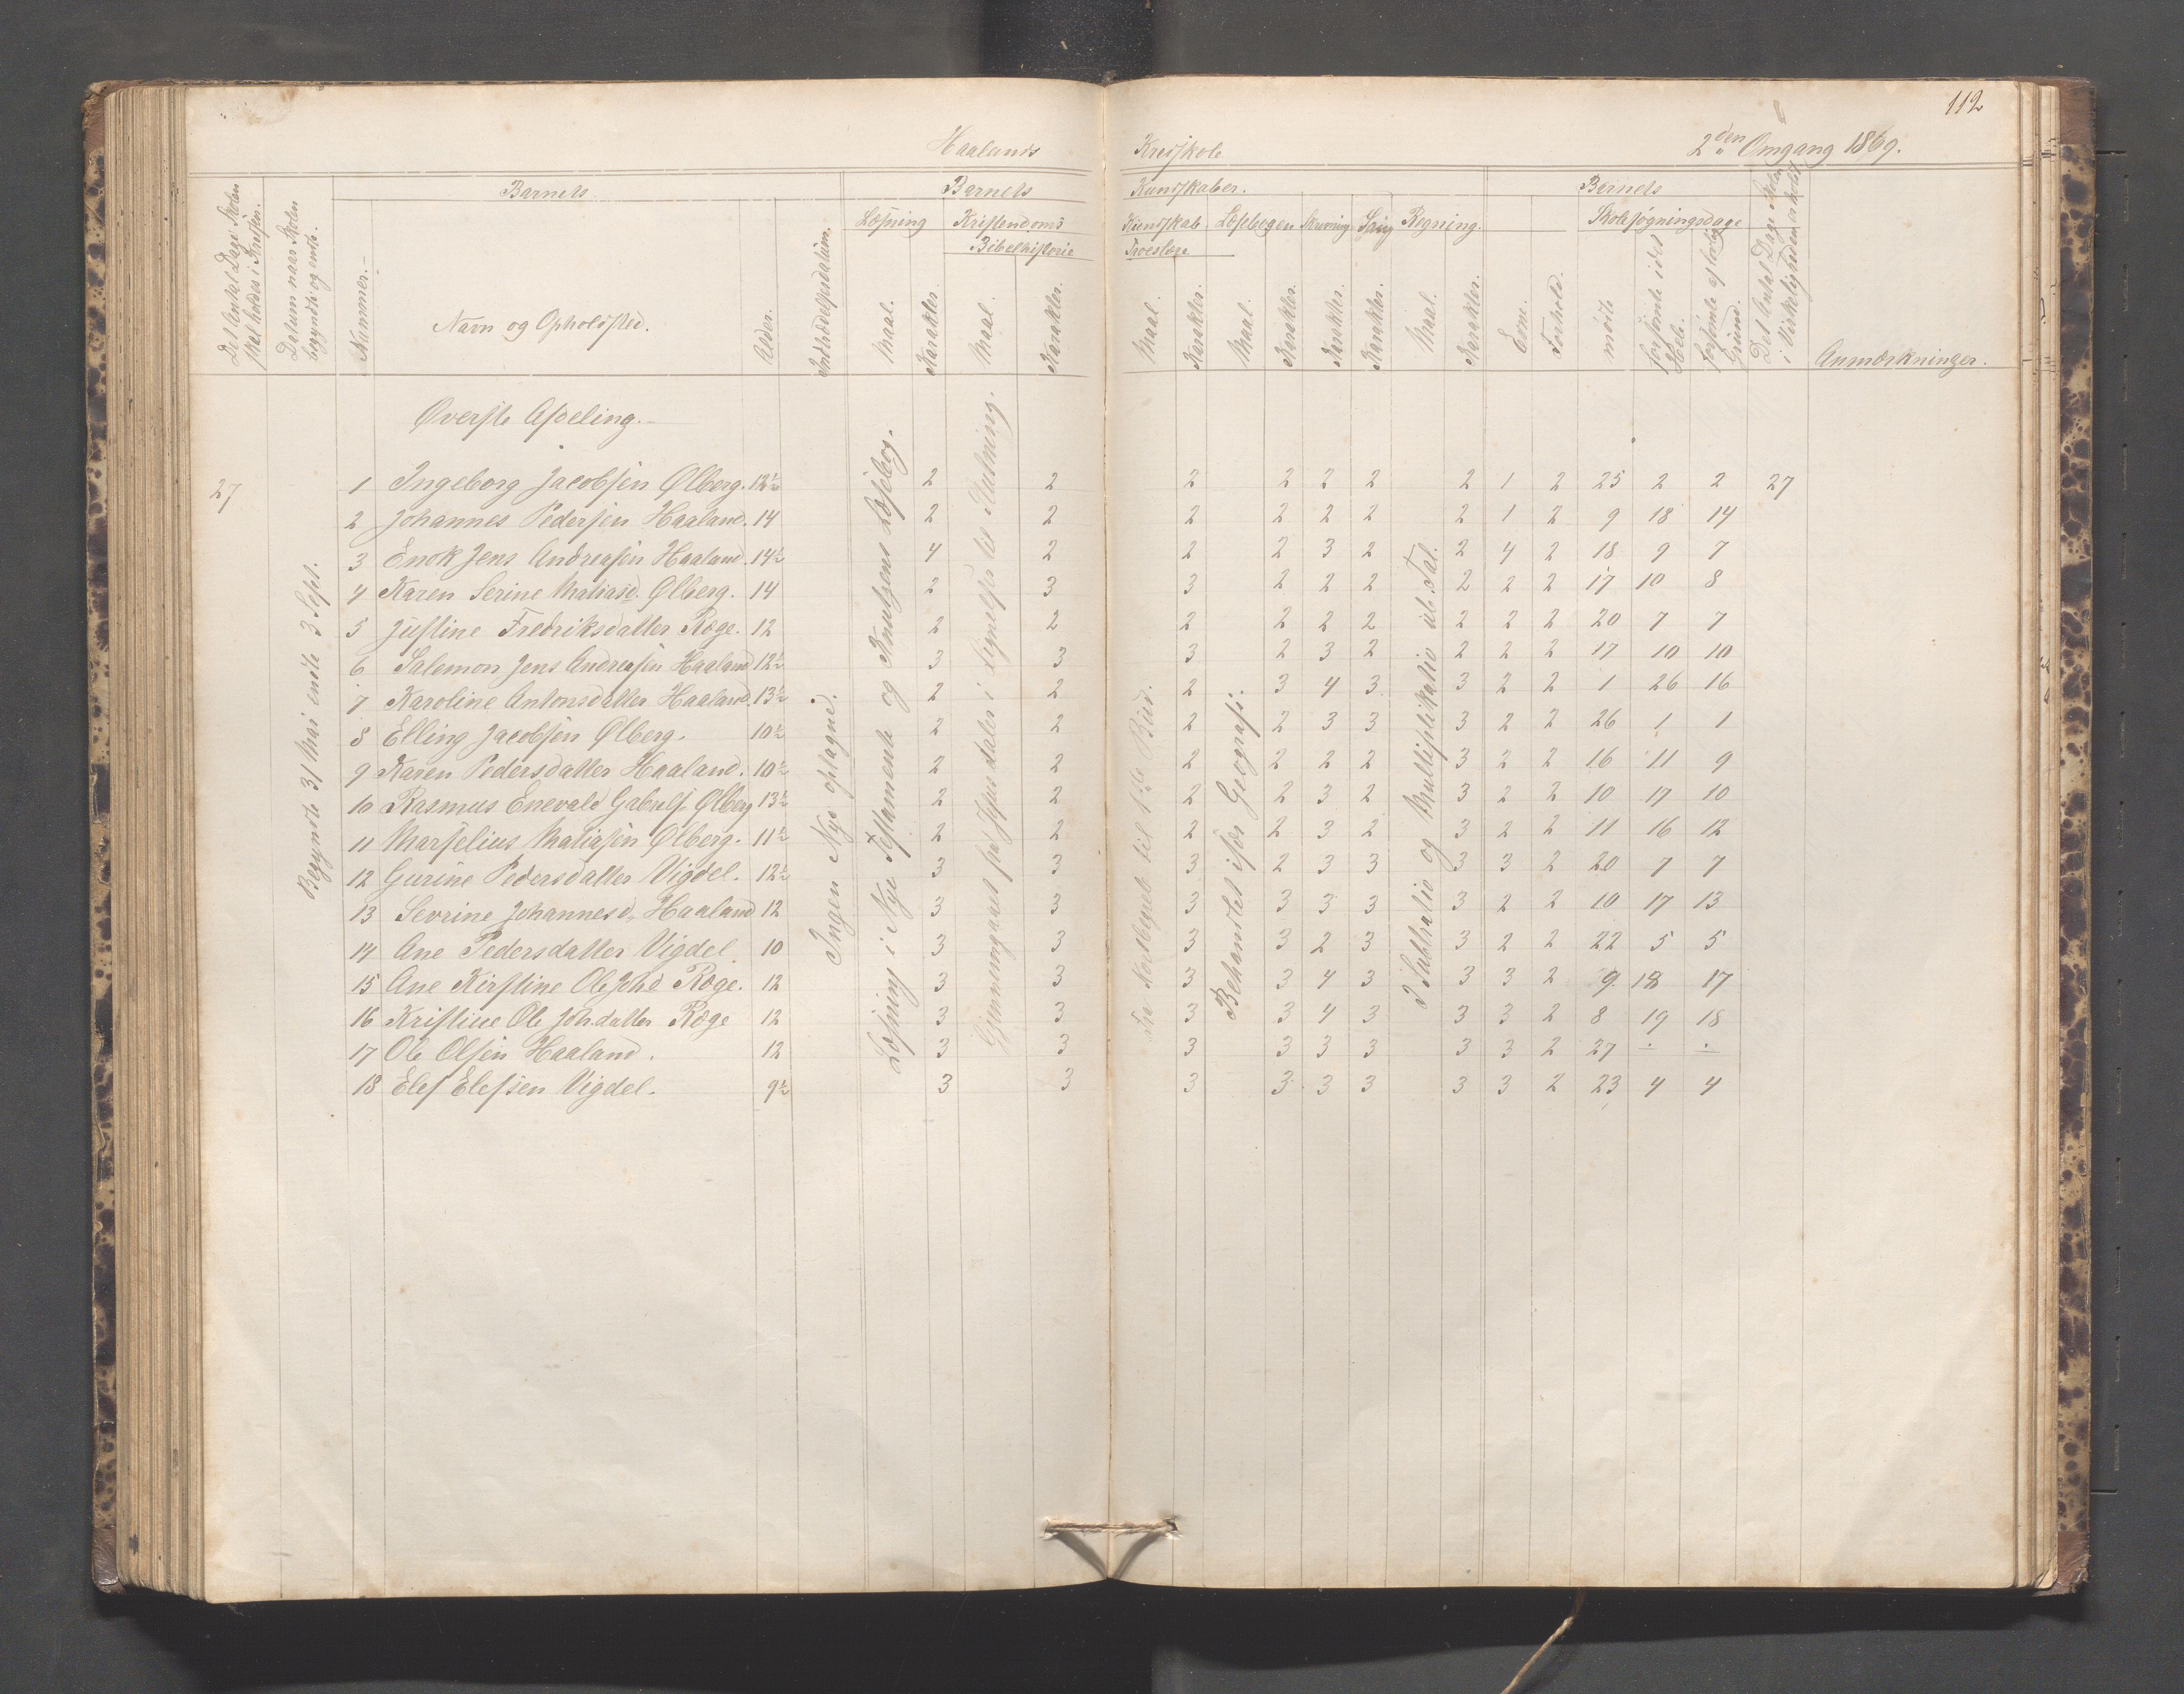 112
Haalands Kredsskole 2den Omgang 1869.
Det Antal Dage Skolen skal holdes i Kredsen.
Datum naar Skolen begyndte og endte.
Barnets
Nummer.
Navn og Opholdssted.
Alder.
Indtrædelsesdatum.
Barnets Kundskaber.
Læsning
Maal.
Karakter.
Kristendoms Kundskab
Bibelhistorie
Maal.
Karakter.
Troeslære
Maal.
Karakter.
Læsebogen
Maal.
Karakter.
Skrivning
Karakter.
Sang
Karakter.
Regning.
Maal.
Karakter.
Evne.
Forhold.
Barnets
Skolesøgningsdage
mødte
forsømte i det Hele.
forsømte af lovlig Grund.
Det Antal Dage Skolen i Virkeligheden er holdt
Anmærkninger.
Øverste Afdeling.
Begyndte 31 Mai endte 3 Sept.
Ingen Nye optagne.
Læsning i Nye Testamente og Knutzens Læsebog.
Gjennemgaaet fra Jesus taler i Lignelser til Slutning.
Fra Nordbegnet til 1ste Bud.
Behandlet især Geografi.
I Subtratio og Multiplikatio ub. Tal.
27 1 Ingeborg Jacobsen Ølberg. 12½ 2 2 2 2 2 2 2 1 2 25 2 2 27
2 Johannes Pedersen Haaland. 14 2 2 2 2 2 2 2 1 2 9 18 14
3 Enok Jens Andreasen Haaland. 14½ 4 2 2 2 3 2 2 4 2 18 9 7
4 Karen Serine Matiasd. Ølberg. 14 2 3 3 2 2 2 2 2 2 17 10 8
5 Justine Fredriksdatter Ræge. 12 2 2 2 2 2 2 2 2 2 20 7 7
6 Salemon Jens Andreasen Haaland 12½ 3 3 3 2 3 2 2 2 2 17 10 10
7 Karoline Antonsdatter Haaland. 13½ 2 2 2 3 4 3 3 2 2 1 26 16
8 Elling Jacobsen Ølberg. 10½ 2 2 2 2 3 3 3 2 2 26 1 1
9 Karen Pedersdatter Haaland. 10½ 2 2 2 2 2 2 3 2 2 16 11 9
10 Rasmus Enevald Gabrielss. Ølberg 13½ 2 2 2 2 3 2 3 2 2 10 17 10
11 Marselius Matiasen Ølberg. 11½ 2 2 2 2 3 2 3 2 2 11 16 12
12 Gurine Pedersdatter Vigdel. 12½ 3 3 3 2 3 3 3 3 2 20 7 7
13 Sevrine Johannesd. Haaland 12 3 3 3 3 3 3 3 2 2 10 17 13
14 Ane Pedersdatter Vigdel. 10 3 3 3 3 2 3 3 2 2 22 5 5
15 Ane Kirstine Ole Johd Ræge. 12 3 3 3 3 4 3 3 3 2 9 18 17
16 Kristine Ole Joh.datter Ræge 12 3 3 3 3 4 3 3 3 2 8 19 18
17 Ole Olsen Haaland. 12 3 3 3 3 3 3 3 3 2 27
18 Elef Elefsen Vigdel. 9½ 3 3 3 3 3 3 3 3 2 23 4 4